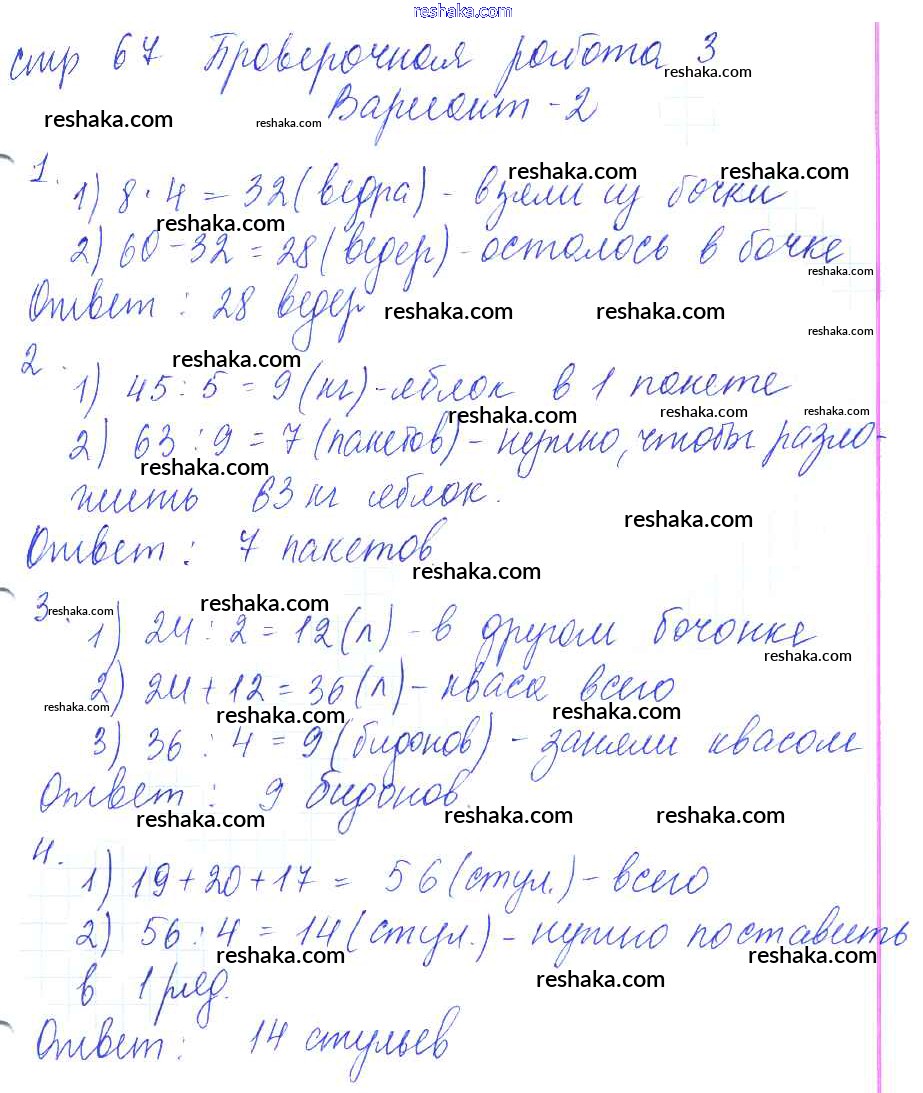 reshaka.com
стр 67 Проверочная работа 3
reshaka.com
Вариант - 2
reshaka.com reshaka.com
1.
reshaka.com reshaka.com
1) 8 · 4 = 32 (ведра) - взяли из бочки
reshaka.com
2) 60 - 32 = 28 (ведер) - осталось в бочке
reshaka.com
Ответ : 28 ведер
reshaka.com reshaka.com
reshaka.com
2.
reshaka.com
1) 45 : 5 = 9 (кг) - яблок в 1 пакете
reshaka.com reshaka.com reshaka.com
2) 63 : 9 = 7 (пакетов) - нужно, чтобы разло-
reshaka.com
жить 63 кг яблок.
reshaka.com
Ответ : 7 пакетов
reshaka.com
3.
reshaka.com reshaka.com
1) 24 : 2 = 12 (л) - в другом бочонке
reshaka.com
2) 24 + 12 = 36 (л) - кваса всего
reshaka.com reshaka.com reshaka.com
3) 36 : 4 = 9 (бидонов) - заняли квасом
Ответ : 9 бидонов
reshaka.com reshaka.com reshaka.com
4.
1) 19 + 20 + 17 = 56 (стул.) - всего
2) 56 : 4 = 14 (стул.) - нужно поставить
reshaka.com reshaka.com reshaka.com
в 1 ряд.
Ответ : 14 стульев